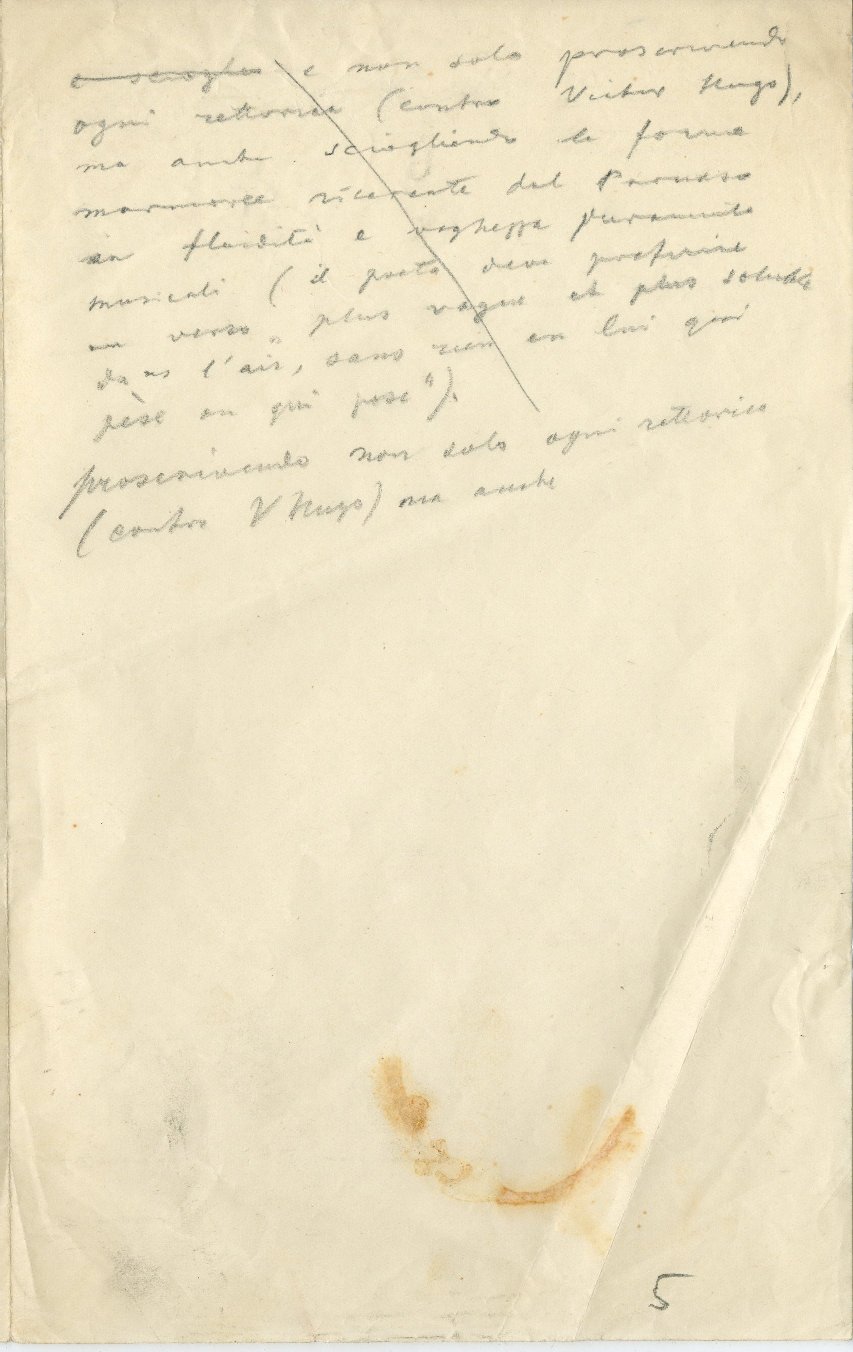 e scioglie e non solo proscrivendo
ogni rettorica (contro Victor Hugo),
ma anche sciogliendo le forme
marmoree ricercate dal Parnaso
in fluidità e vaghezza puramente
musicali (il poeta deve preferire
un verso „plus vague et plus soluble
dans l'air, sans rien en lui qui
pèse ou qui pose").
proscrivendo non solo ogni rettorica
(contro V Hugo) ma anche
5